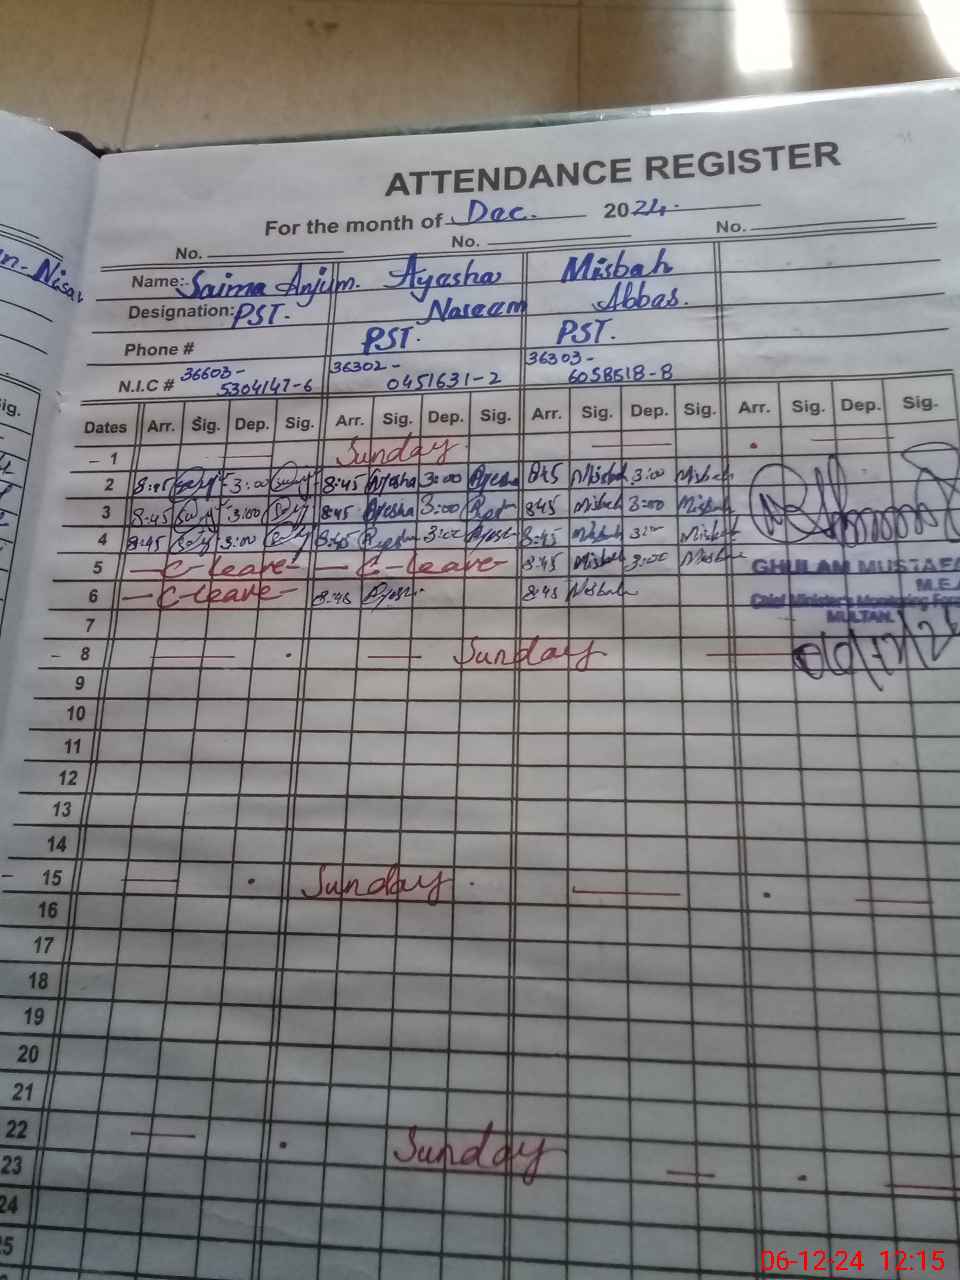 ATTENDANCE REGISTER
For the month of Dec. 2024.
No. No. No.
n-Nisar
Name:- Saima Anjum. Ayesha Misbah
Designation: PST. Naseem Abbas.
Phone # PST. PST.
N.I.C # 36603- 36302- 36303-
5304147-6 0451631-2 6058518-8
ig.
Dates Arr. Sig. Dep. Sig. Arr. Sig. Dep. Sig. Arr. Sig. Dep. Sig. Arr. Sig. Dep. Sig.
1 Sunday
2 8:45 3:00 8:45 Ayesha 3:00 Ayesha 8:45 Misbah 3:00 Misbah
3 8:45 3:00 8:45 Ayesha 3:00 8:45 Misbah 3:00 Misbah
4 8:45 3:00 8:45 3:00 Ayesha 8:45 Misbah 3:00 Misbah
5 C-leave C-leave 8:45 Misbah 3:00 Misbah
GHULAM MUSTAFA
M.E.A
6 C-leave 8:45 Ayesha 8:45 Misbah
Chief Minister's Monitoring Force
MULTAN.
7
8 Sunday
06/12/24
9
10
11
12
13
14
15 Sunday
16
17
18
19
20
21
22 Sunday
23
24
5
06-12-24 12:15